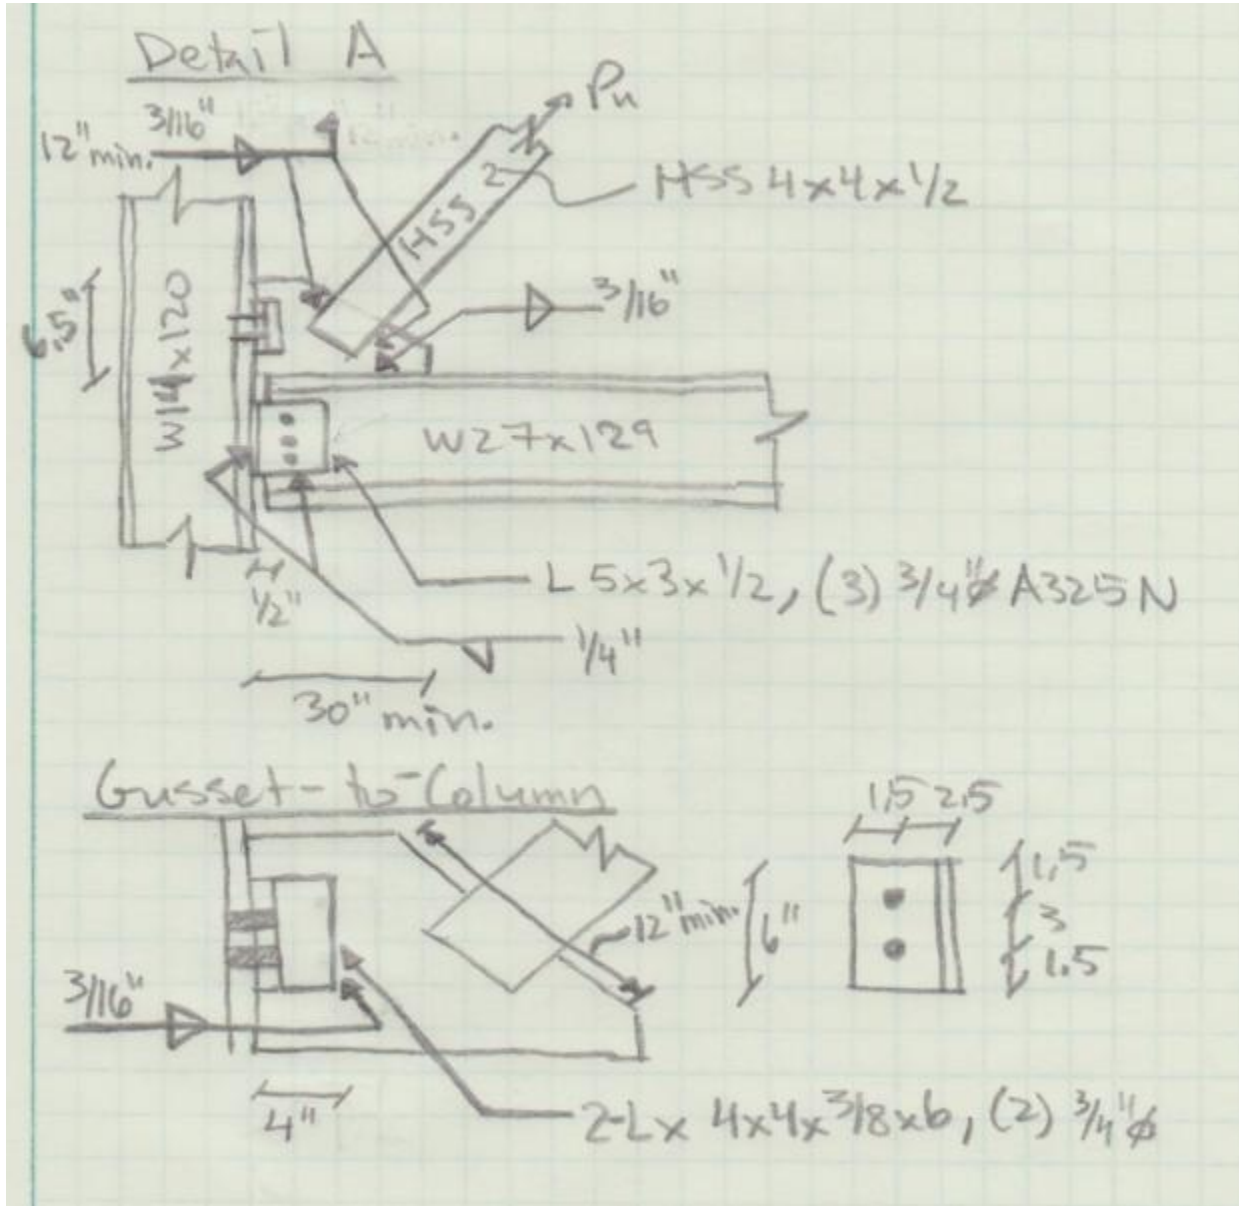 Detail A
Pu
3/16"
12" min.
HSS 2
HSS 4x4x1/2
3/16"
6.5"
W14x120
W27x129
L 5x3x1/2, (3) 3/4"ø A325N
1/2"
1/4"
30" min.
Gusset-to-Column
1,5 2,5
1,5
12" min.
6"
3
1.5
3/16"
4"
2-Lx 4x4x3/8x6, (2) 3/4"ø